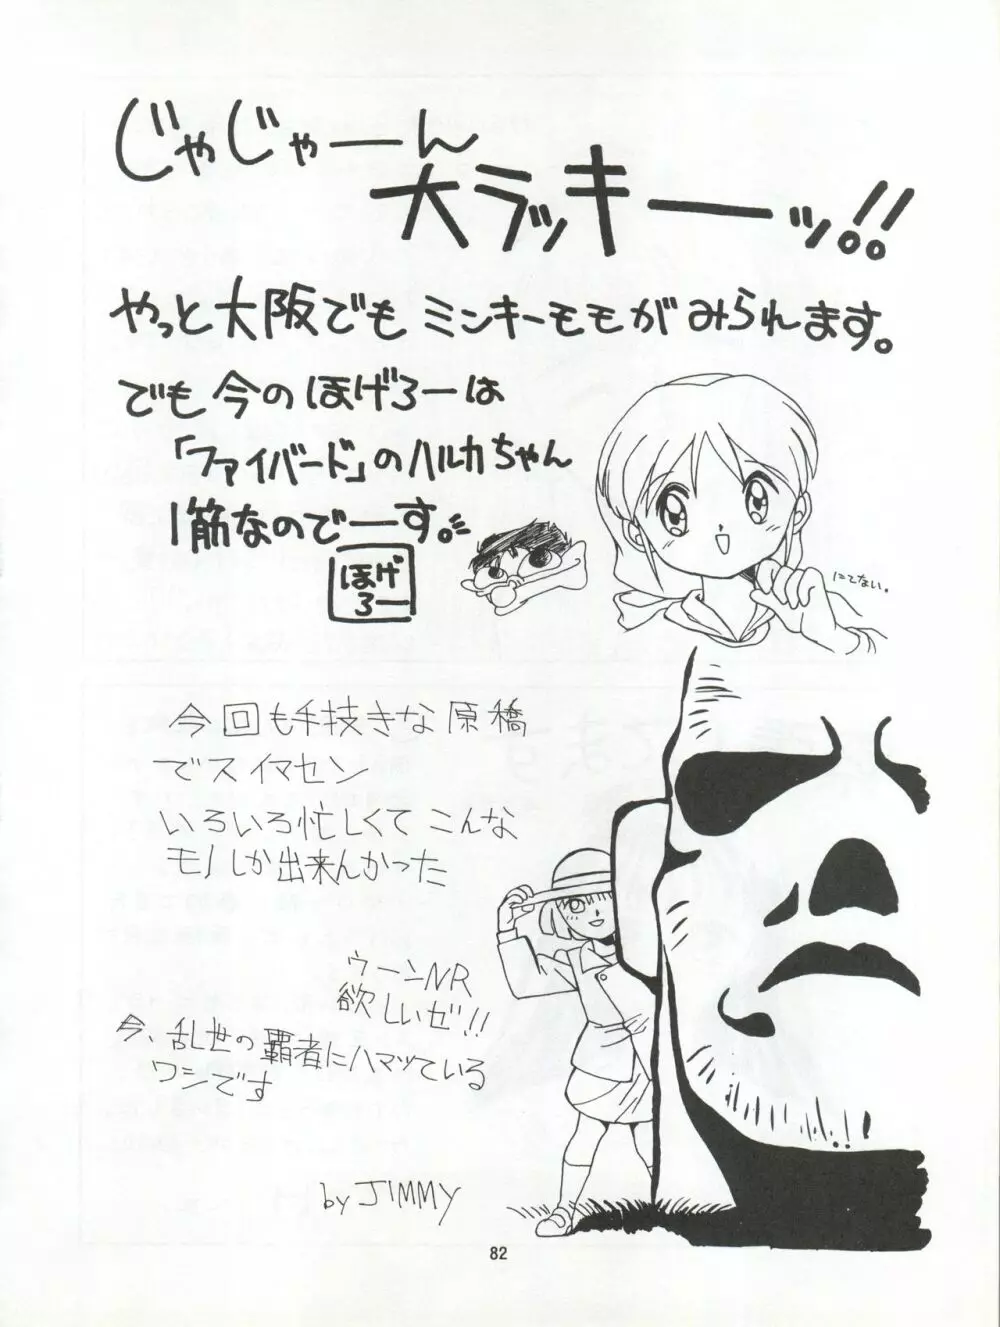 じゃじゃーん
大ラッキーッ!!
やっと大阪でもミンキーモモがみられます。
でも今のほげろーは
「ファイバード」のハルカちゃん
1筋なのでーす。
ほげ
ろー
にてない。
今回も手技きな原橋
でスイマセン
いろいろ忙しくてこんな
モノしか出来んかった
ウーンNR
欲しいゼ!!
今、乱世の覇者にハマッている
ワシです
by JIMMY
82